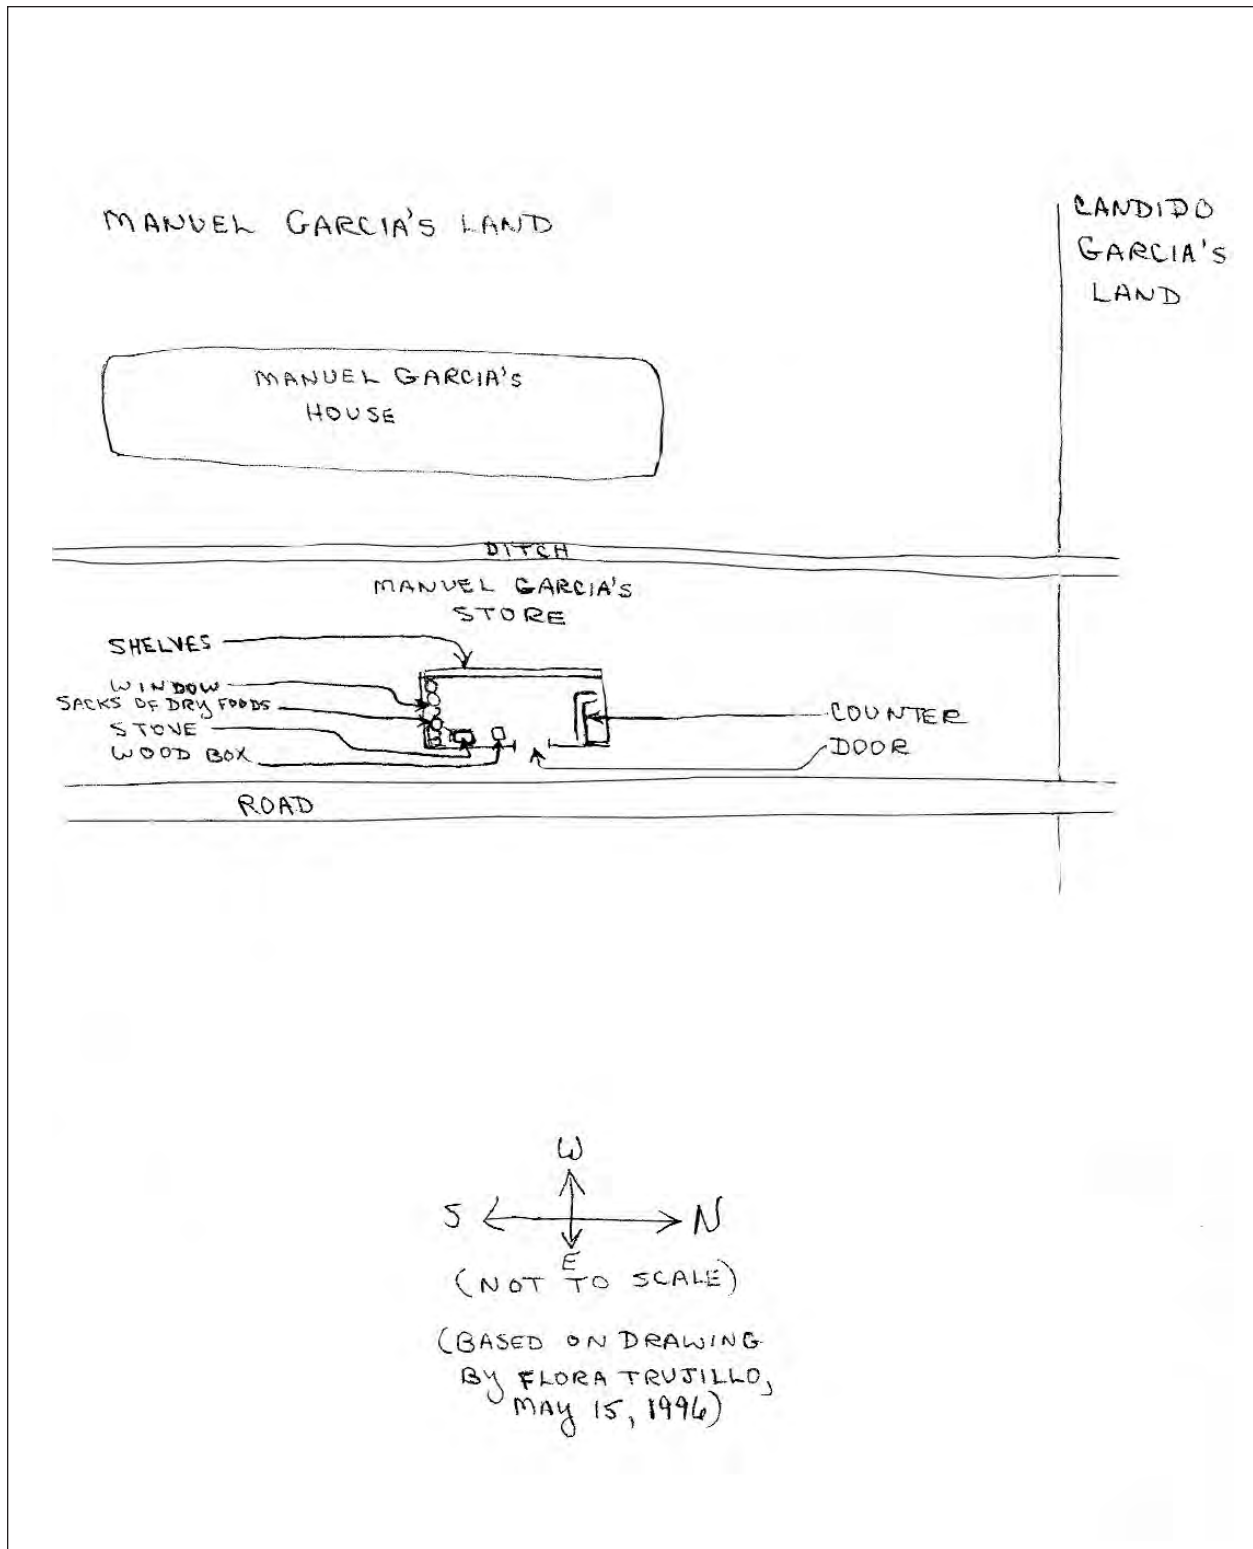 MANUEL GARCIA'S LAND
CANDIDO
GARCIA'S
LAND
MANUEL GARCIA'S
HOUSE
DITCH
MANUEL GARCIA'S
STORE
SHELVES
WINDOW
SACKS OF DRY FOODS
STOVE
WOOD BOX
COUNTER
DOOR
ROAD
W
S
N
E
(NOT TO SCALE)
(BASED ON DRAWING
BY FLORA TRUJILLO,
MAY 15, 1996)